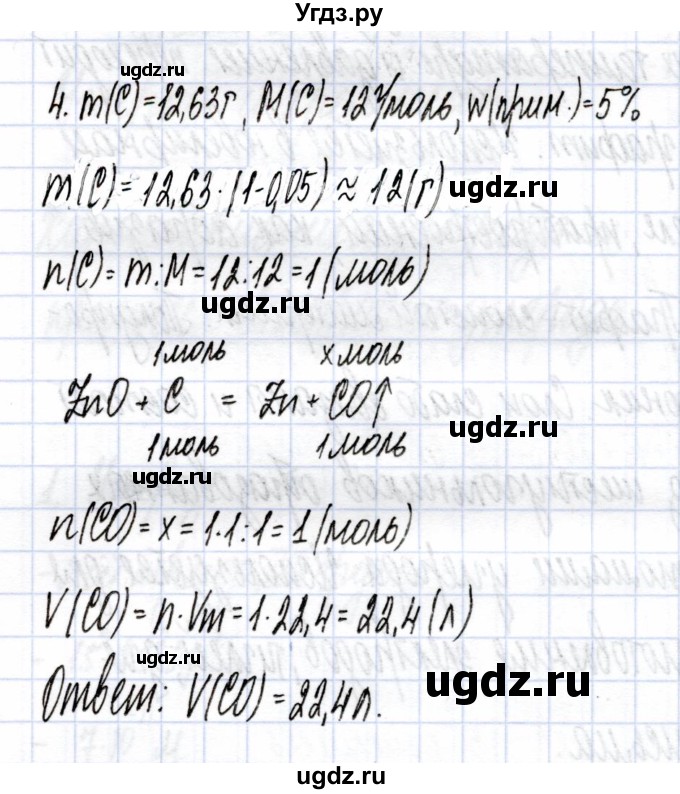 Угдз.ру
ugdz.ru
4. m(C)=12,63г, M(C)=12г/моль, w(прим.)=5%
m(C)=12,63·(1-0,05)≈12(г)
ugdz.ru
n(C)=m:M=12:12=1(моль)
ugdz.ru
1моль xмоль
ZnO + C = Zn + CO↑
ugdz.ru
1моль 1моль
ugdz.ru
n(CO)=x=1·1:1=1(моль)
V(CO)=n·Vm=1·22,4=22,4(л)
ugdz.ru
ugdz.ru
Ответ: V(CO)=22,4л.
ugdz.ru